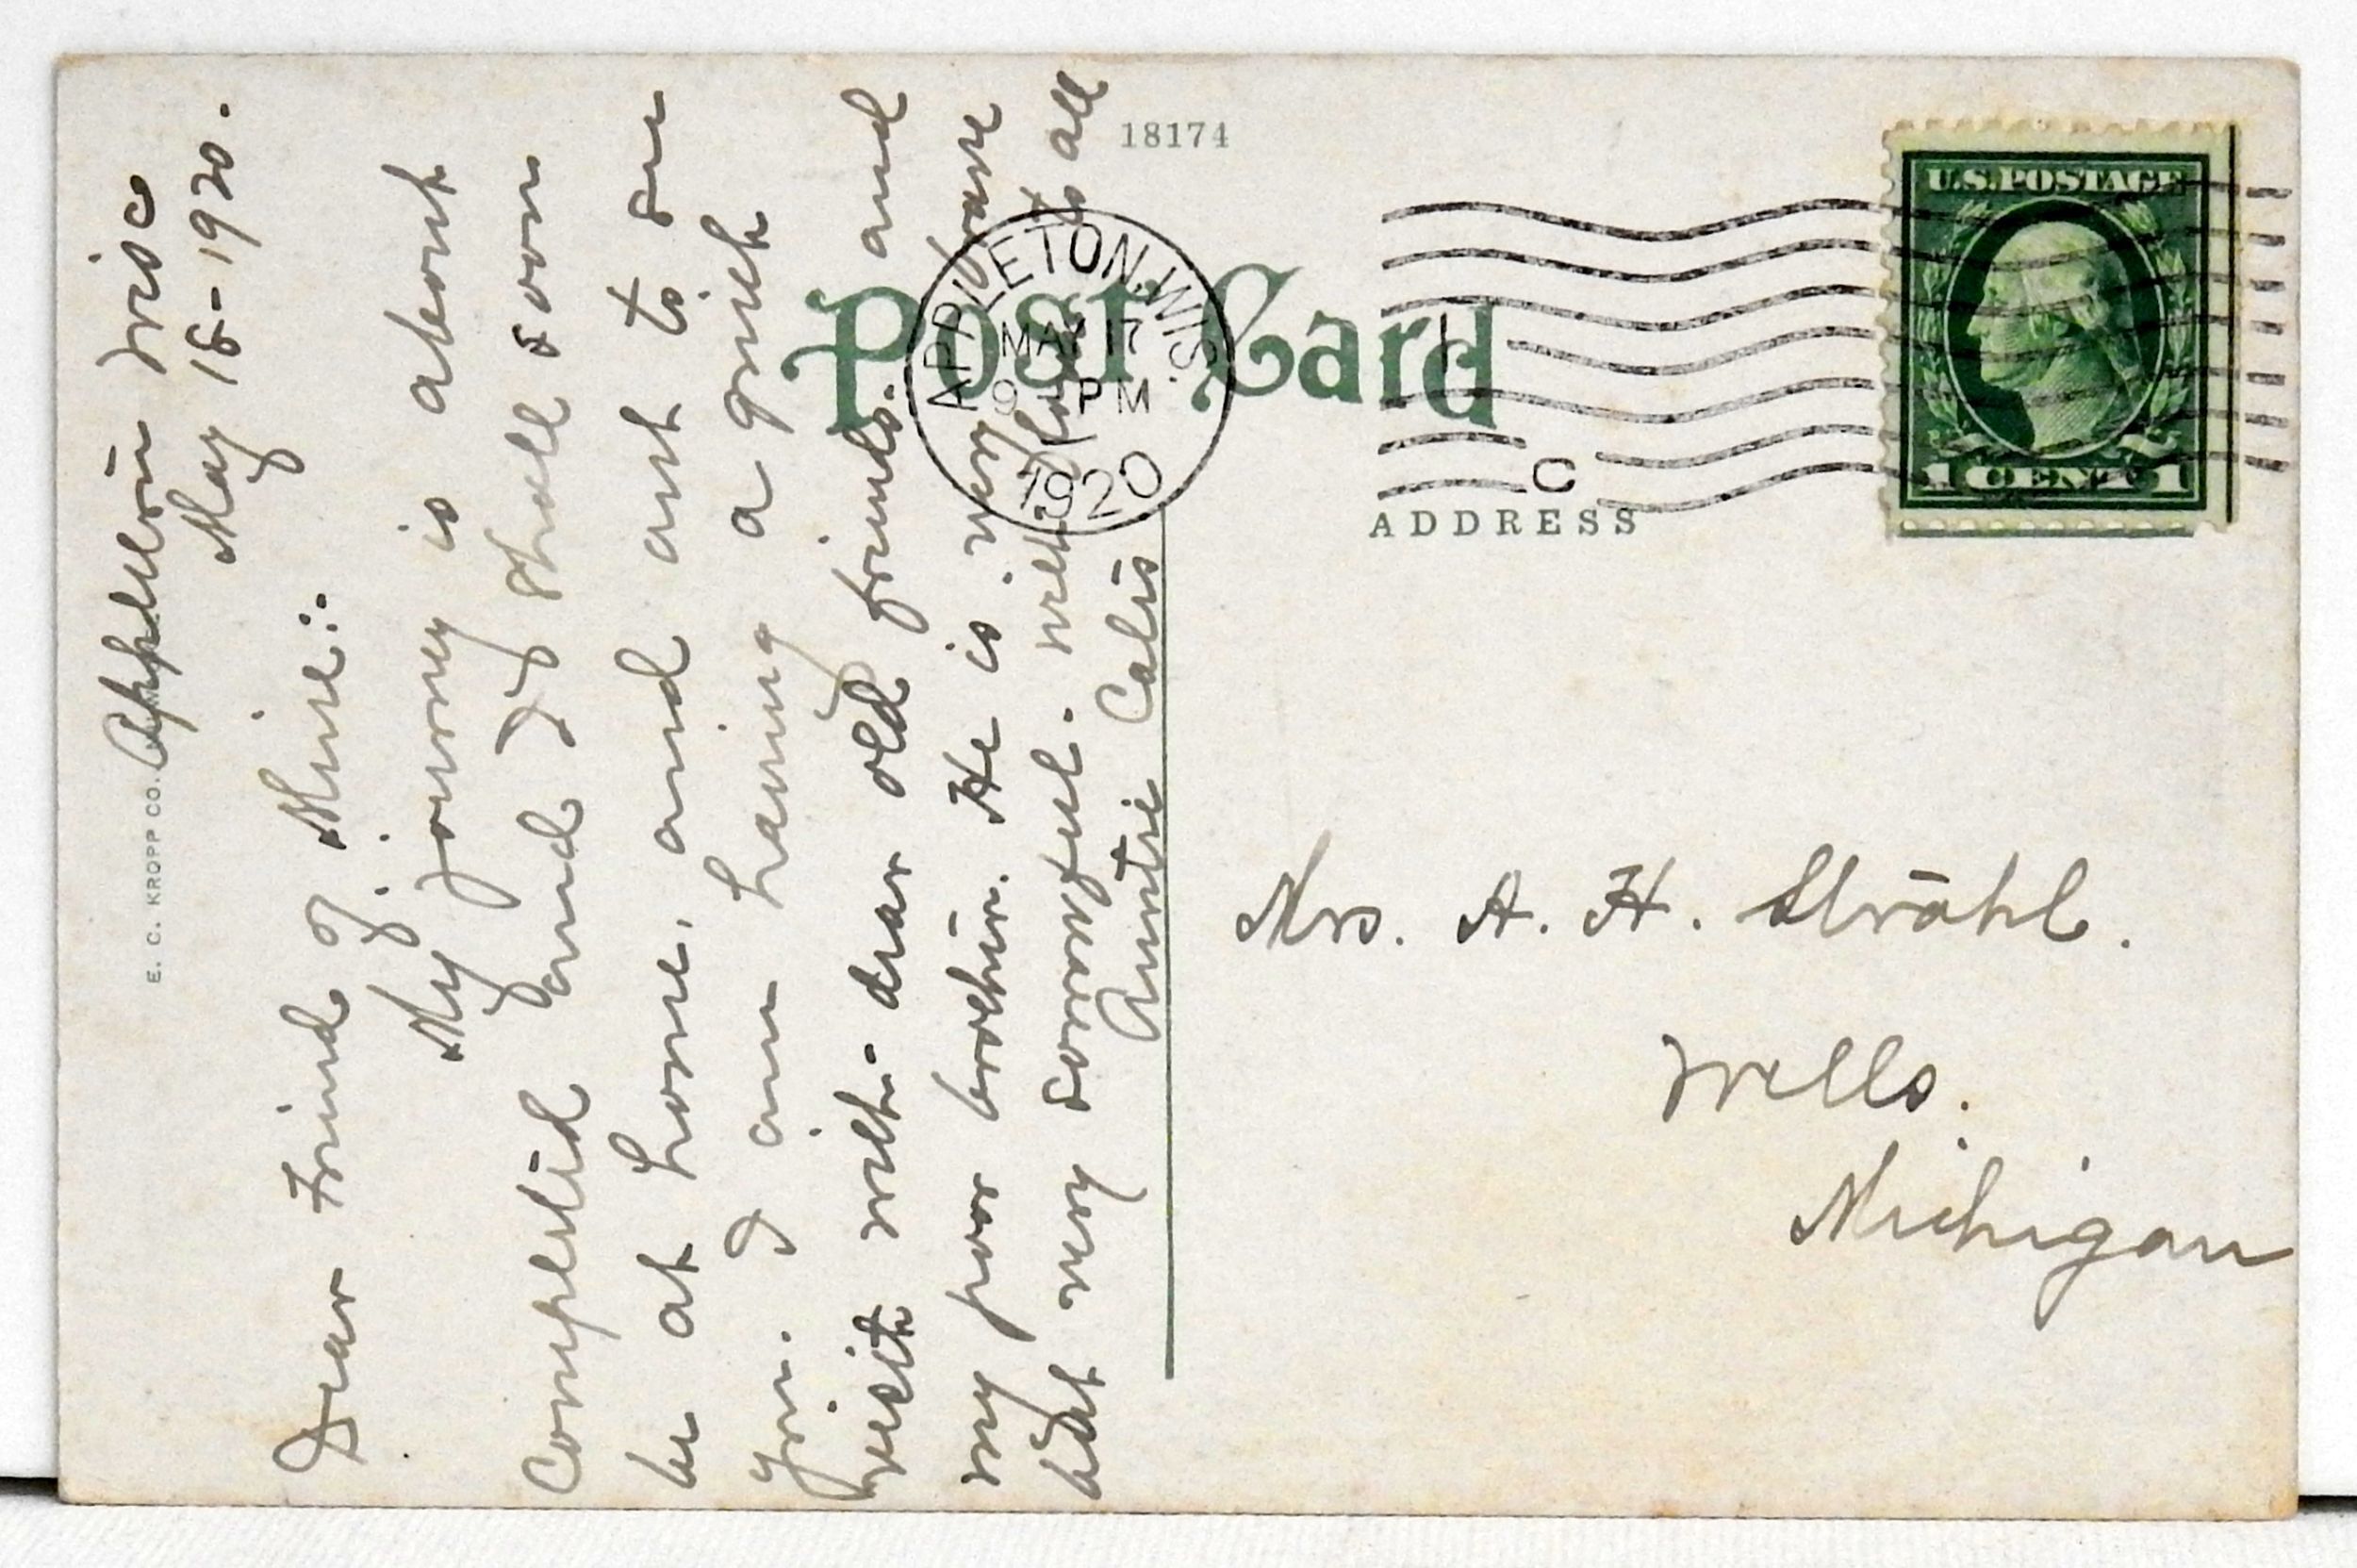 Appleton Wisc
May 15-1920.
Dear Friend of Mine:.
My journey is about
Completed and I shall soon
be at home, and ant to see
you. I am having a quiet
visit with dear old friends. and
my poor brother. He is very lame
but very sorrowful. with love to all
Auntie
E. C. KROPP CO.
18174
Post Card
APPLETON, WIS.
MAY 17
9 PM
1920
C
ADDRESS
U.S. POSTAGE
1 CENT 1
Mrs. A. H. Strahl.
Wells.
Michigan